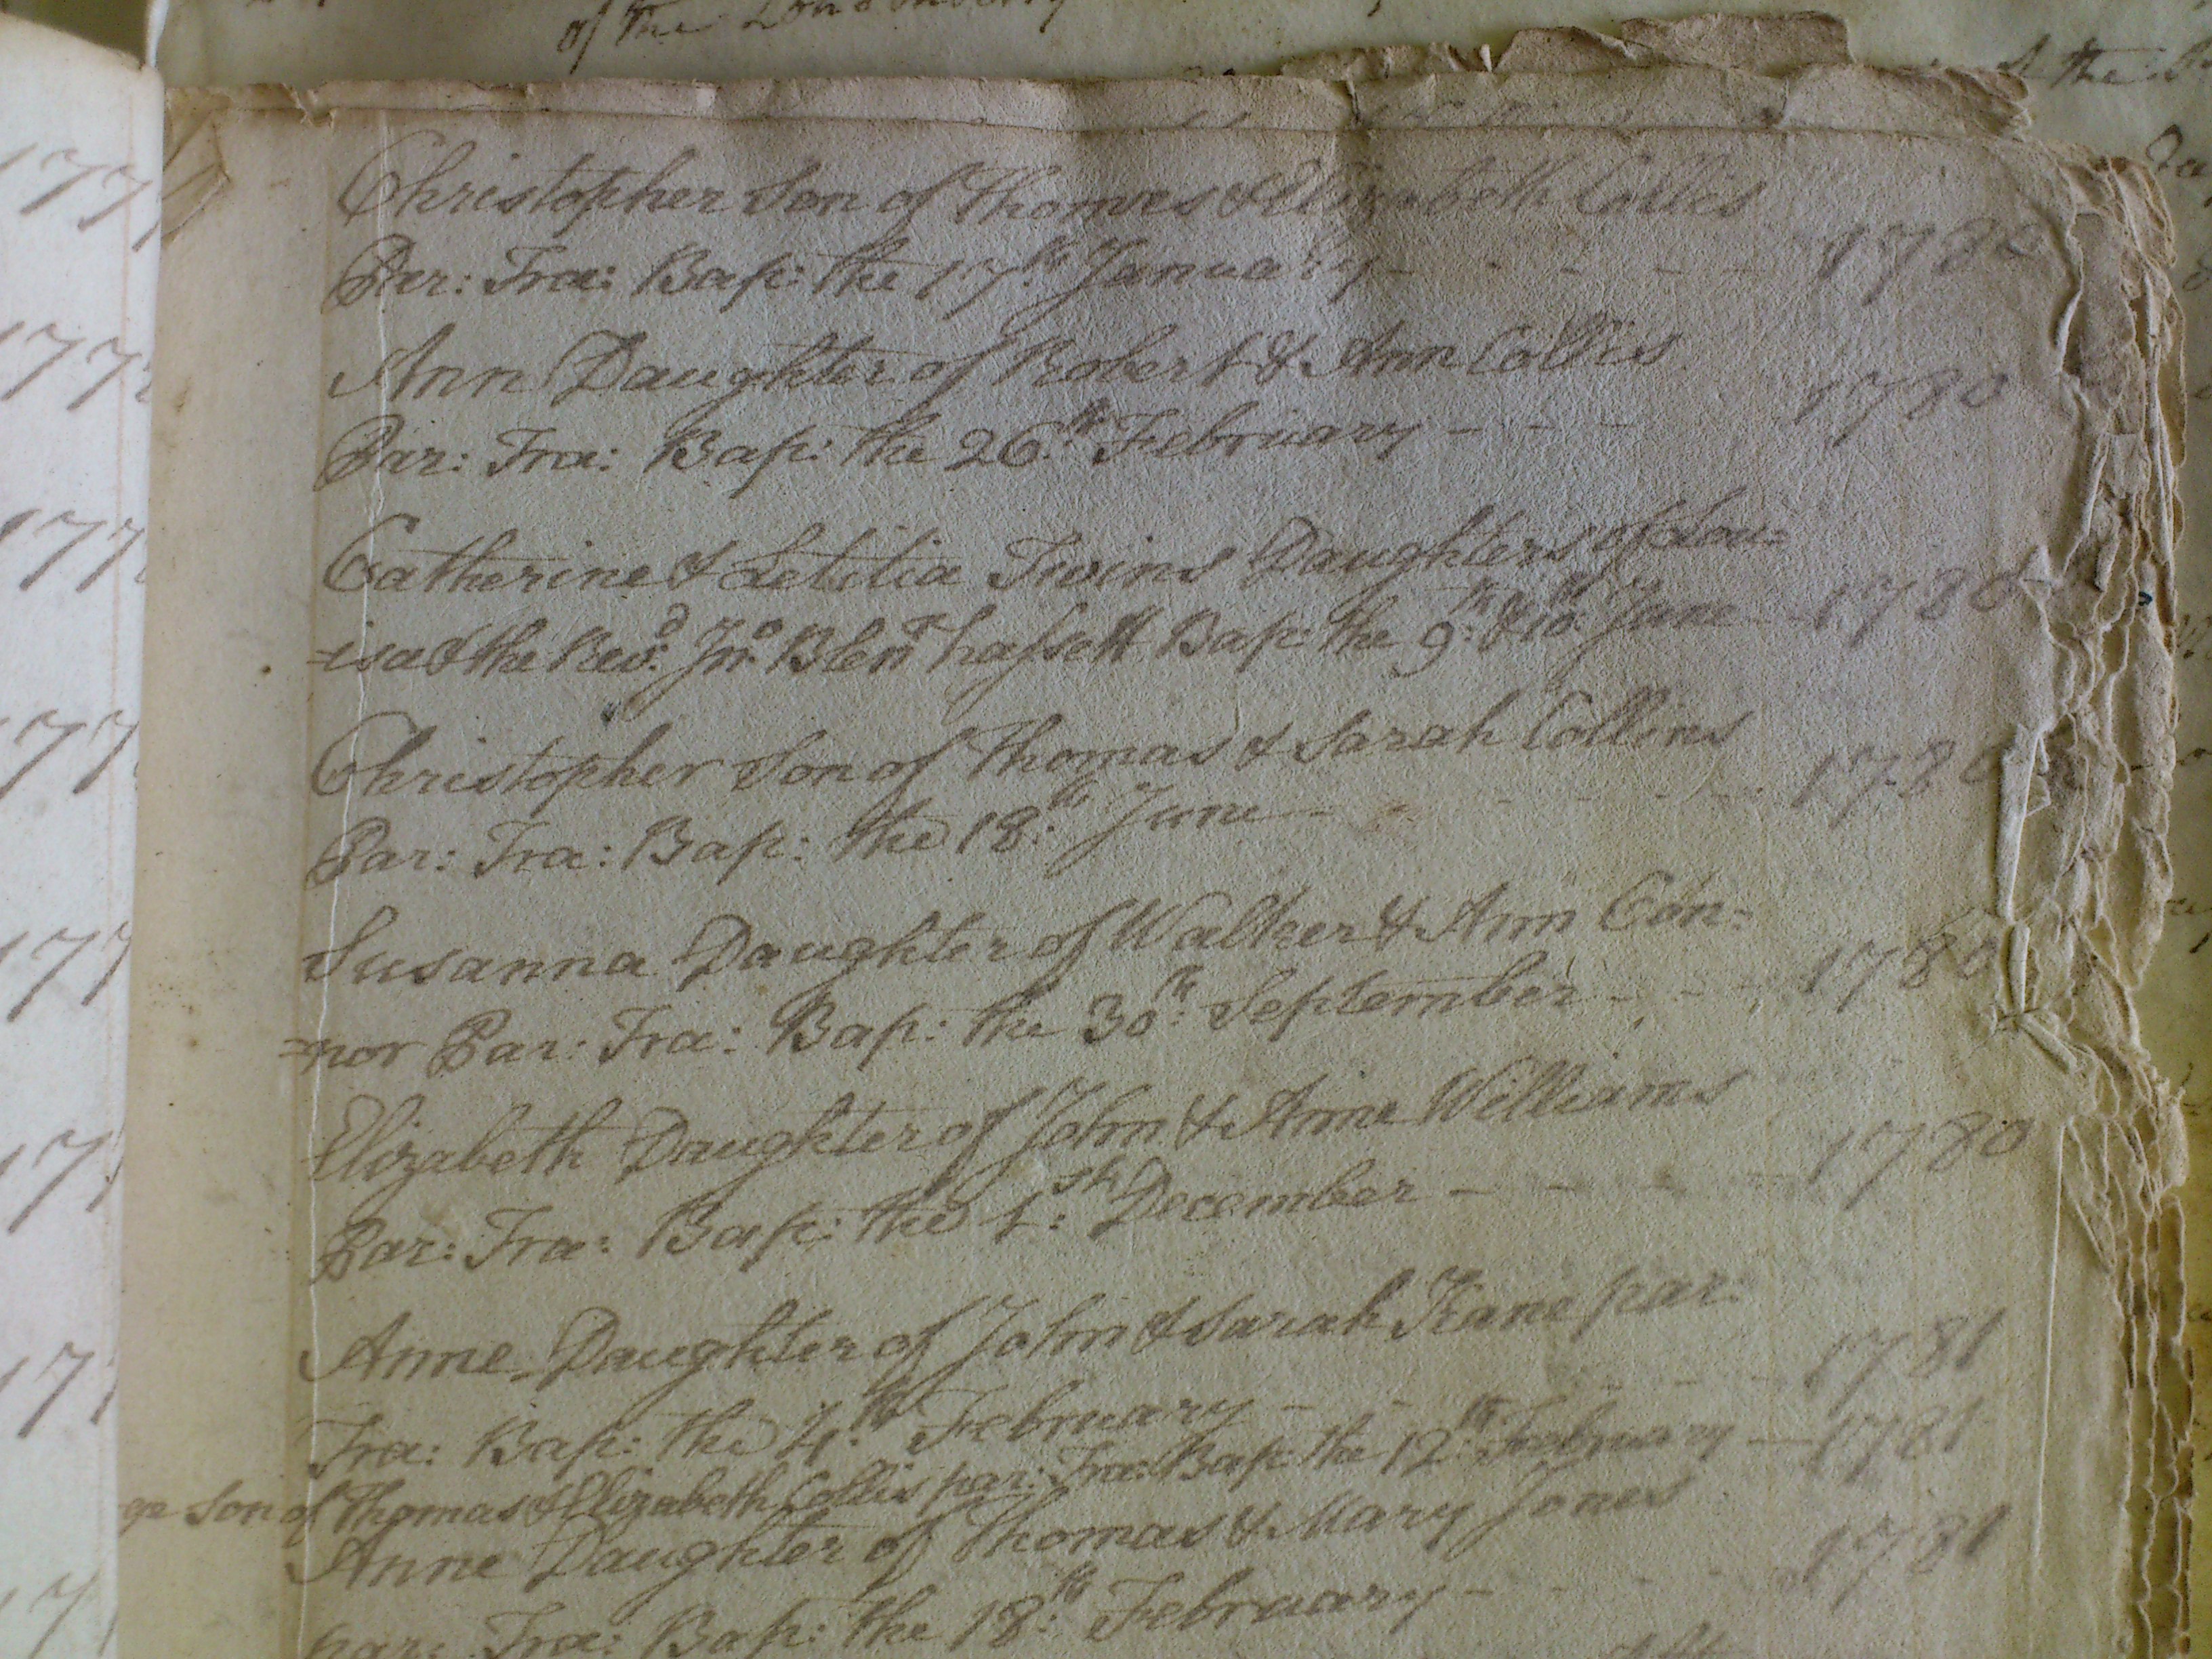 of the Londonderry
Christopher Son of Thomas & Elizabeth Collis
Par: Tra: Bap: the 17th January - - - - - 1780
Ann Daughter of Robert & Ann Collis
Par: Tra: Bap: the 26th February - - - 1780
Catherine & Letitia Twins Daughters of Lou=
=isa & the Revd. Jno. Blennhassett Bap: the 9th & 10th June - 1780
Christopher Son of Thomas & Sarah Collins
Par: Tra: Bap: the 18th June - - - - - 1780
Susanna Daughter of Walter & Ann Con=
=nor Par: Tra: Bap: the 30th September - - - 1780
Elizabeth Daughter of John & Anne Williams
Par: Tra: Bap: the 1st December - - - - - 1780
Anne Daughter of John & Sarah Kane par:
Tra: Bap: the 4th February - - - - - 1781
ge Son of Thomas & Elizabeth Collis par: Tra: Bap: the 12th February - 1781
Anne Daughter of Thomas & Mary Jones
par: Tra: Bap: the 18th February - - - - - 1781